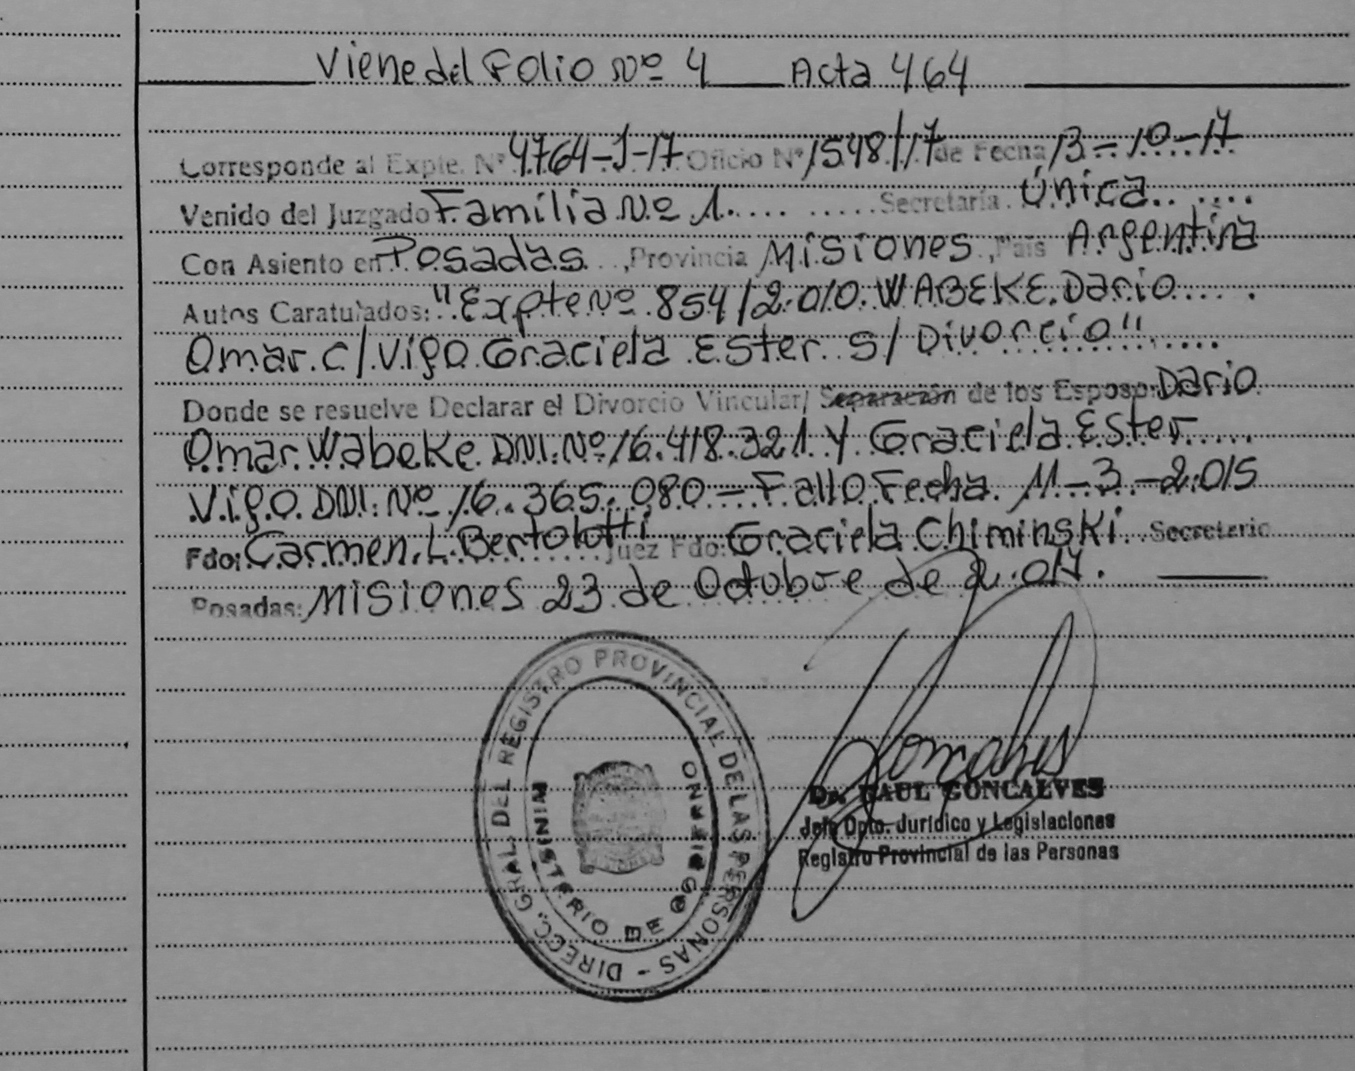 Viene del Folio Nº 4 Acta 464
Corresponde al Expte. Nº 4764-J-17 Oficio Nº 1548/17 de Fecha 13-10-17
Venido del Juzgado Familia Nº 1. Secretaría. Única.
Con Asiento en Posadas, Provincia Misiones, País Argentina
Autos Caratulados: "Expte Nº 854/2.010. WABEKE. Dario
Omar. c/ Vigo. Graciela Ester. s/ Divorcio"
Donde se resuelve Declarar el Divorcio Vincular/ Separación de los Esposo: Dario
Omar. Wabeke. DNI. Nº 16.418.321. Y Graciela. Ester
Vigo. DNI. Nº 16.365.080 - Fallo Fecha. 11-3-2.015
Fdo: Carmen. L. Bertolotti Juez Fdo: Graciela Chiminski. Secretario
Posadas: Misiones 23 de Octubre de 2.017.
DIRECC. GRAL. DEL REGISTRO PROVINCIAL DE LAS PERSONAS -
MINISTERIO DE GOBIERNO
Dr. RAUL GONCALVES
Jefe Dpto. Jurídico y Legislaciones
Registro Provincial de las Personas